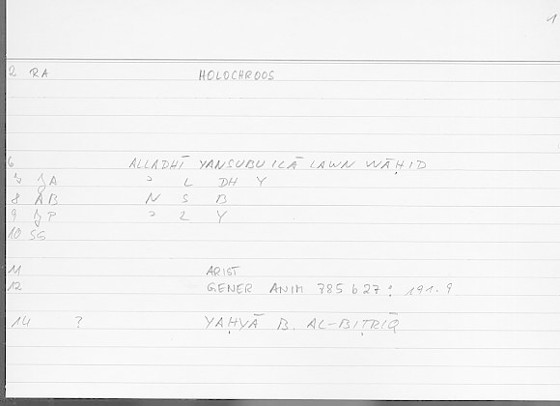 1
2 RA HOLOCHROOS
6 ALLADHĪ YANSUBU ILĀ LAWN WĀḤID
7 JA ᵓ L DH Y
8 AB N S B
9 JP ᵓ L Y
10 SG
11 ARIST
12 GENER ANIM 785 b 27 : 191.9
14 ? YAḤYĀ B. AL-BIṬRĪQ